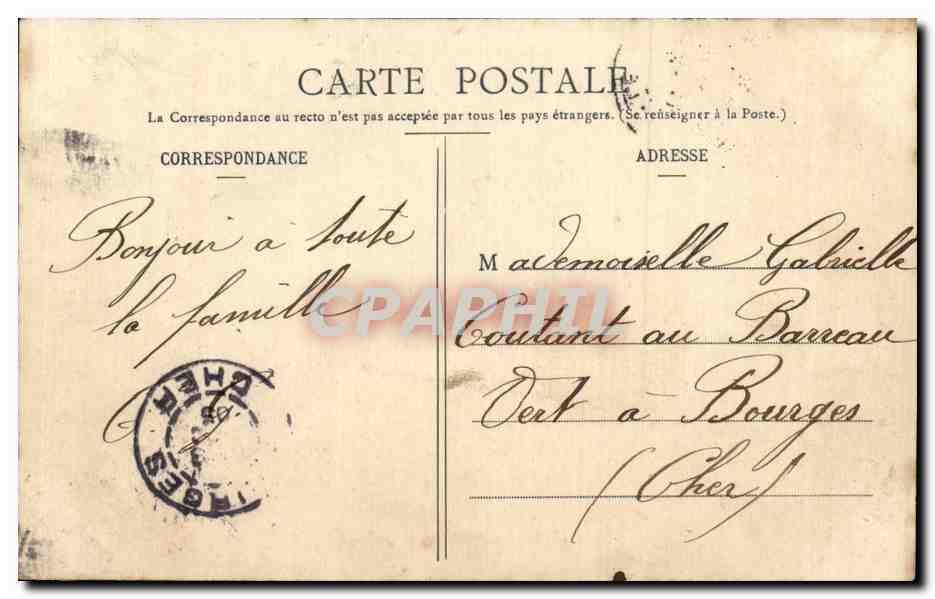 CARTE POSTALE
La Correspondance au recto n'est pas acceptée par tous les pays étrangers. (Se renseigner à la Poste.)
CORRESPONDANCE
Bonjour à toute
la famille
BOURGES
CHER
ADRESSE
Mademoiselle Gabrielle
Coutant au Barreau
Vert à Bourges
(Cher)
CPAPHIL